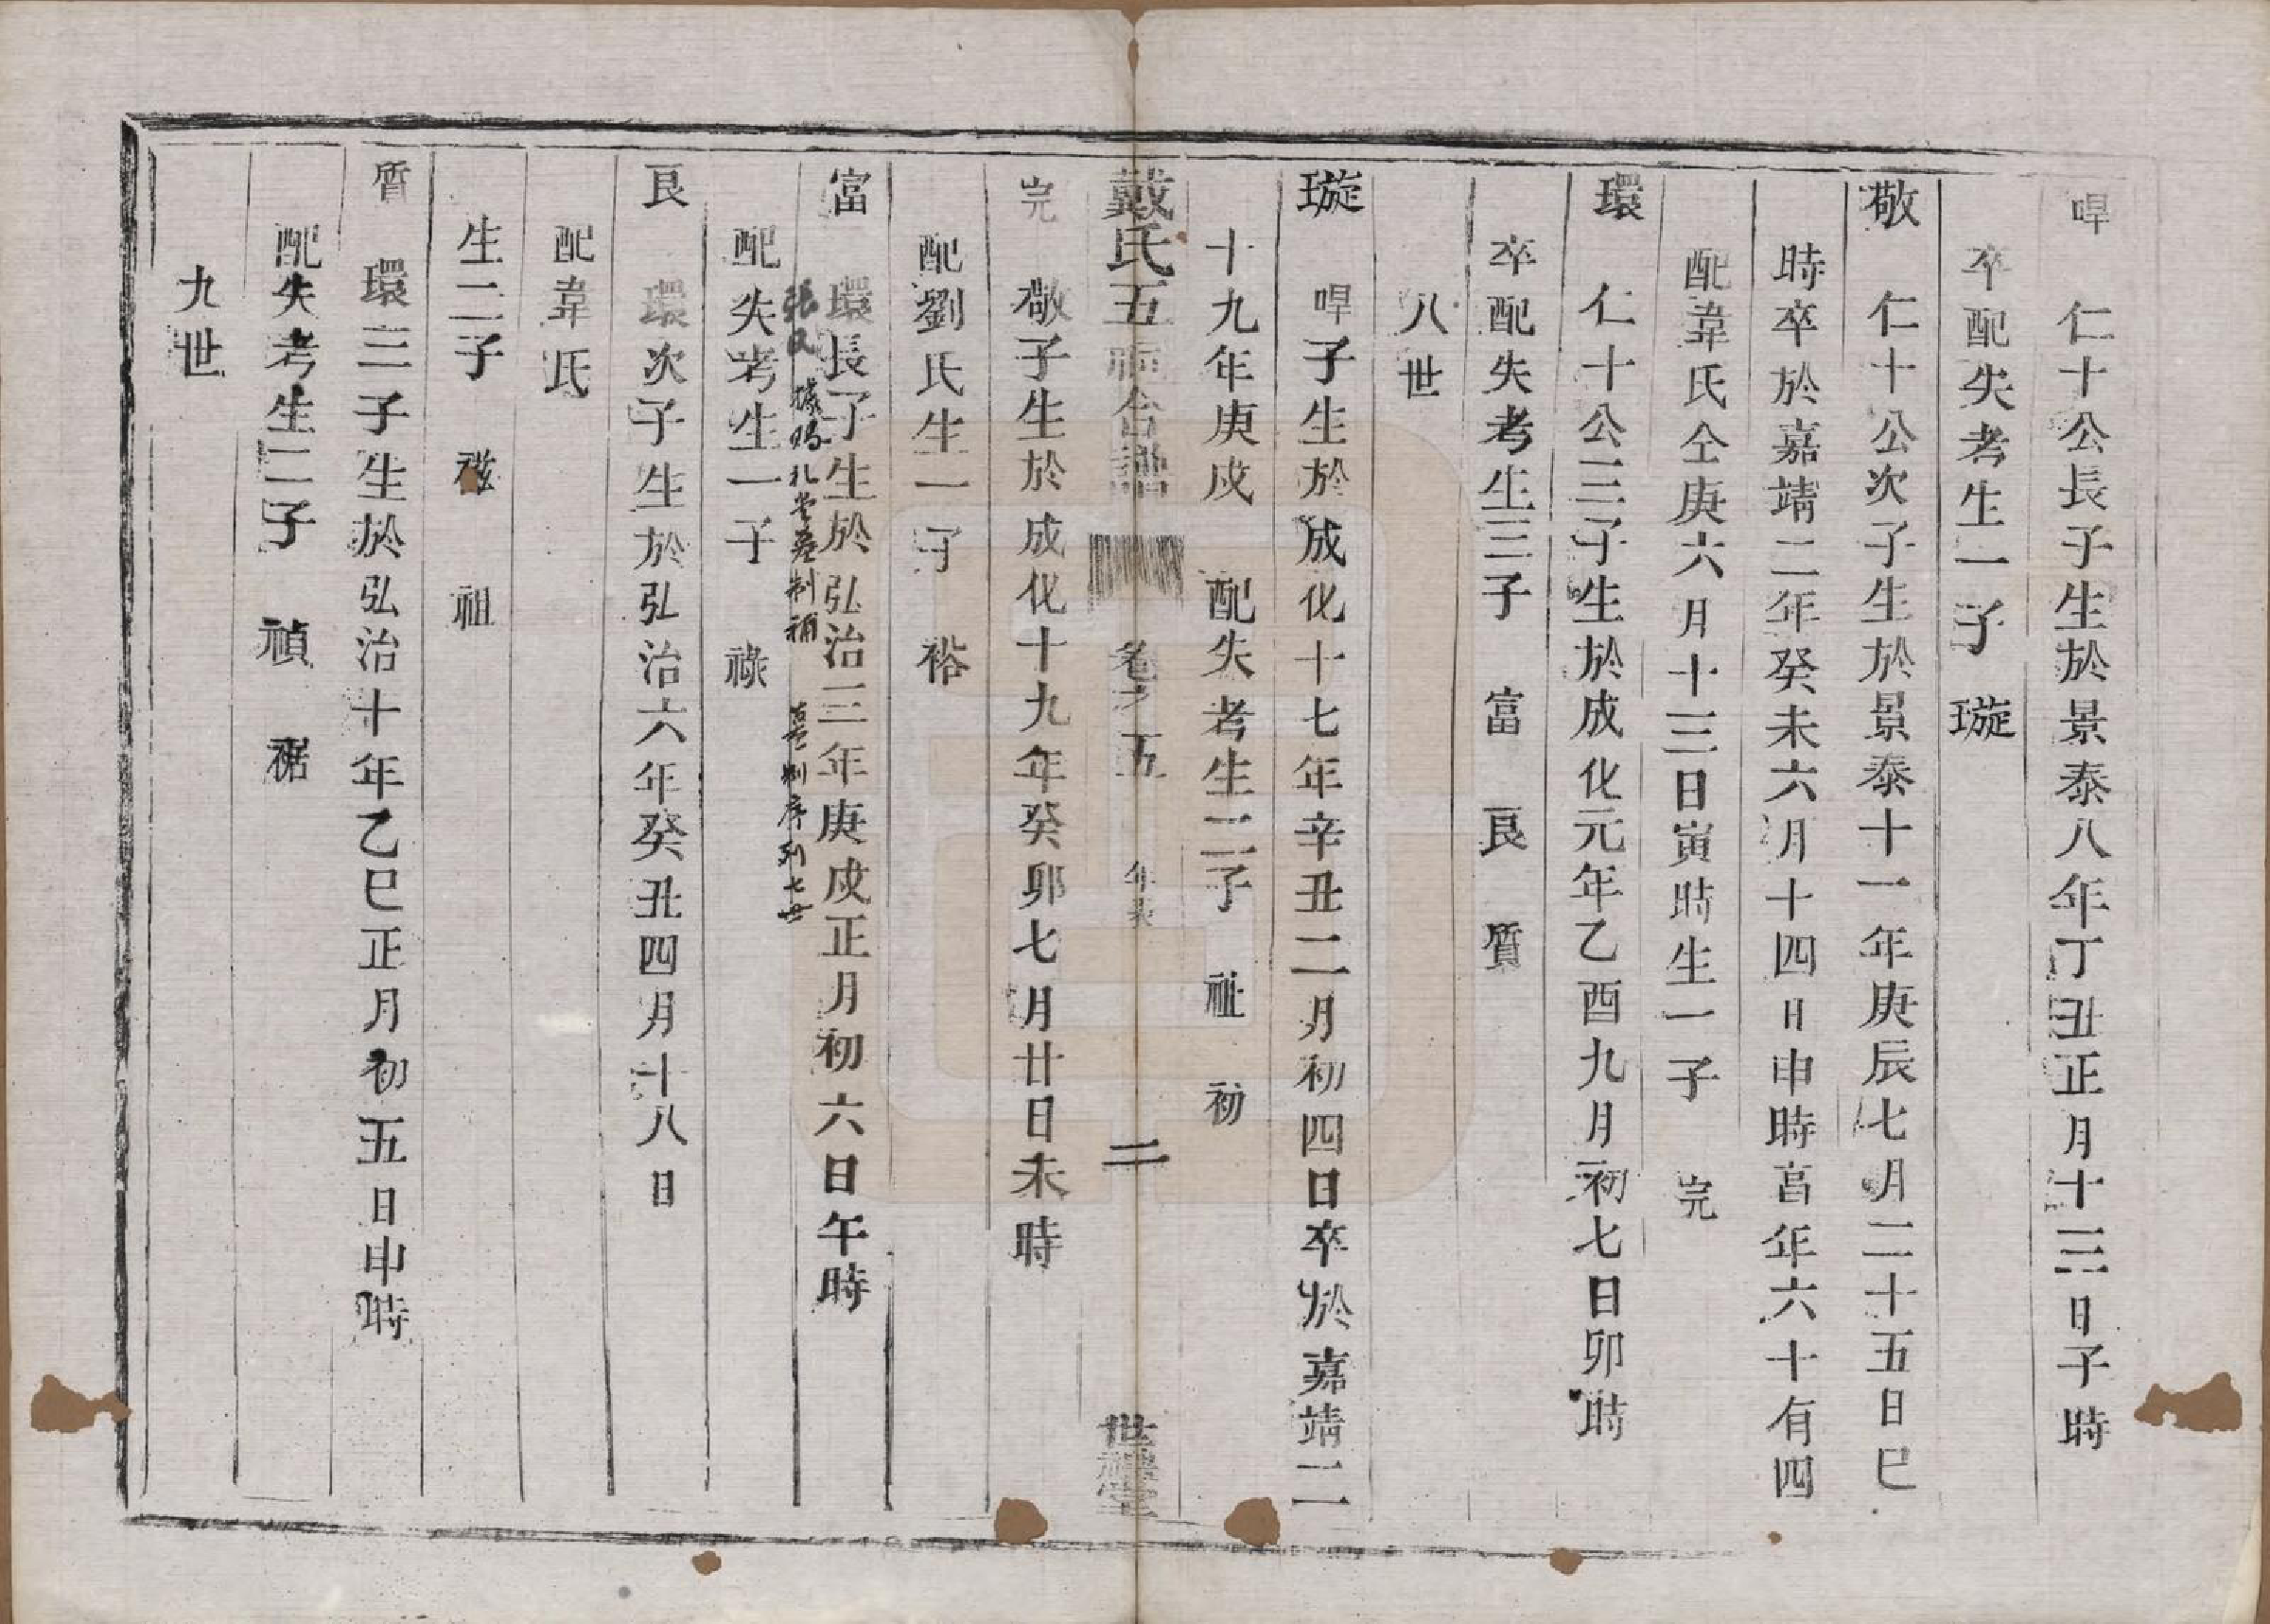 㖏 仁十公長子生於景泰八年丁丑正月十三日子時
卒配失考生一子 璇
敬 仁十公次子生於景泰十一年庚辰七月二十五日巳
時卒於嘉靖二年癸未六月十四日申時享年六十有四
配韋氏仝庚六月十三日寅時生一子 完
環 仁十公三子生於成化元年乙酉九月初七日卯時
卒配失考生三子 富 艮 質
八世
璇 㖏子生於成化十七年辛丑二月初四日卒於嘉靖二
十九年庚戌 配失考生二子 祉 初
戴氏五福合譜 卷之五 年表 二 世德堂
完 敬子生於成化十九年癸卯七月廿日未時
配劉氏生一子 裕
富 環長子生於弘治三年庚戌正月初六日午時
張氏 禮堂基制補 基制序列七世
配失考生一子 祿
艮 環次子生於弘治六年癸丑四月十八日
配韋氏
生二子 祖
質 環三子生於弘治十年乙巳正月初五日申時
配失考生二子 禎 裾
九世